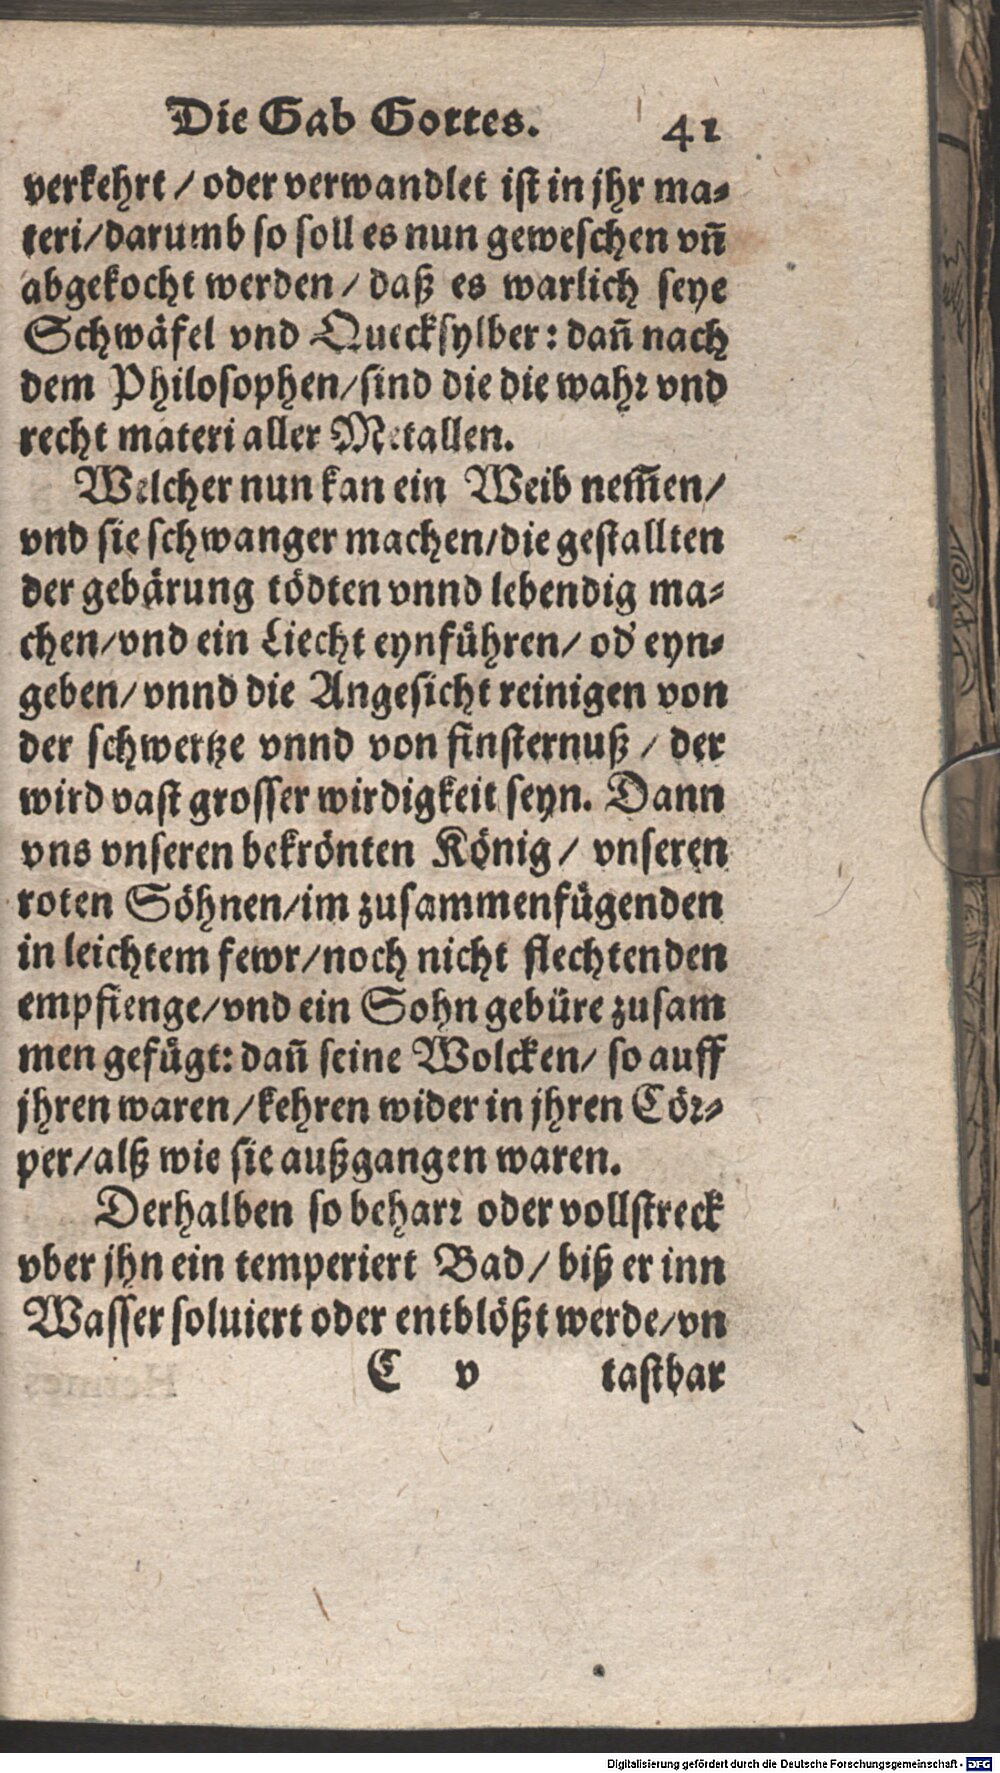 Die Gab Gottes. 41
verkehrt / oder verwandlet ist in jhr ma⸗
teri/darumb so soll es nun geweschen vñ
abgekocht werden / daß es warlich seye
Schwäfel vnd Quecksylber: dañ nach
dem Philosophen/sind die die wahr vnd
recht materi aller Metallen.
Welcher nun kan ein Weib nem̃en/
vnd sie schwanger machen/die gestallten
der gebärung tödten vnnd lebendig ma⸗
chen/vnd ein Liecht eynführen/ od' eyn⸗
geben/ vnnd die Angesicht reinigen von
der schwertze vnnd von finsternuß / der
wird vast grosser wirdigkeit seyn. Dann
vns vnseren bekrönten König/ vnseren
roten Söhnen/im zusammenfügenden
in leichtem fewr/noch nicht flechtenden
empfienge/vnd ein Sohn gebüre zusam
men gefügt: dañ seine Wolcken/ so auff
jhren waren/kehren wider in jhren Cör⸗
per/alß wie sie außgangen waren.
Derhalben so beharr oder vollstreck
vber jhn ein temperiert Bad/ biß er inn
Wasser soluiert oder entblößt werde/vn
C v tastbar
Digitalisierung gefördert durch die Deutsche Forschungsgemeinschaft - DFG